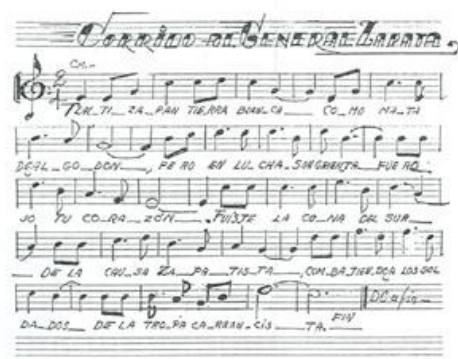 CORRIDO DEL GENERAL ZAPATA
TLAL_TI_ZA_PAN TIERRA BLAN_CA___ CO_MO MA_TA
DEAL_GO_DON___, PE RO EN LU_CHA_SANGRIENTA__FUE RO_
JO TU CO_RA_ZÓN___. FUISTE LA CU_NA DEL SUR___
___DE LA CAU_SA ZA_PA_TIS_TA___, COM_BA_TIEN_DO A LOS SOL
DA_DOS___DE LA TRO_PA CA_RRAN_CIS___TA. FIN
D.C. a fin